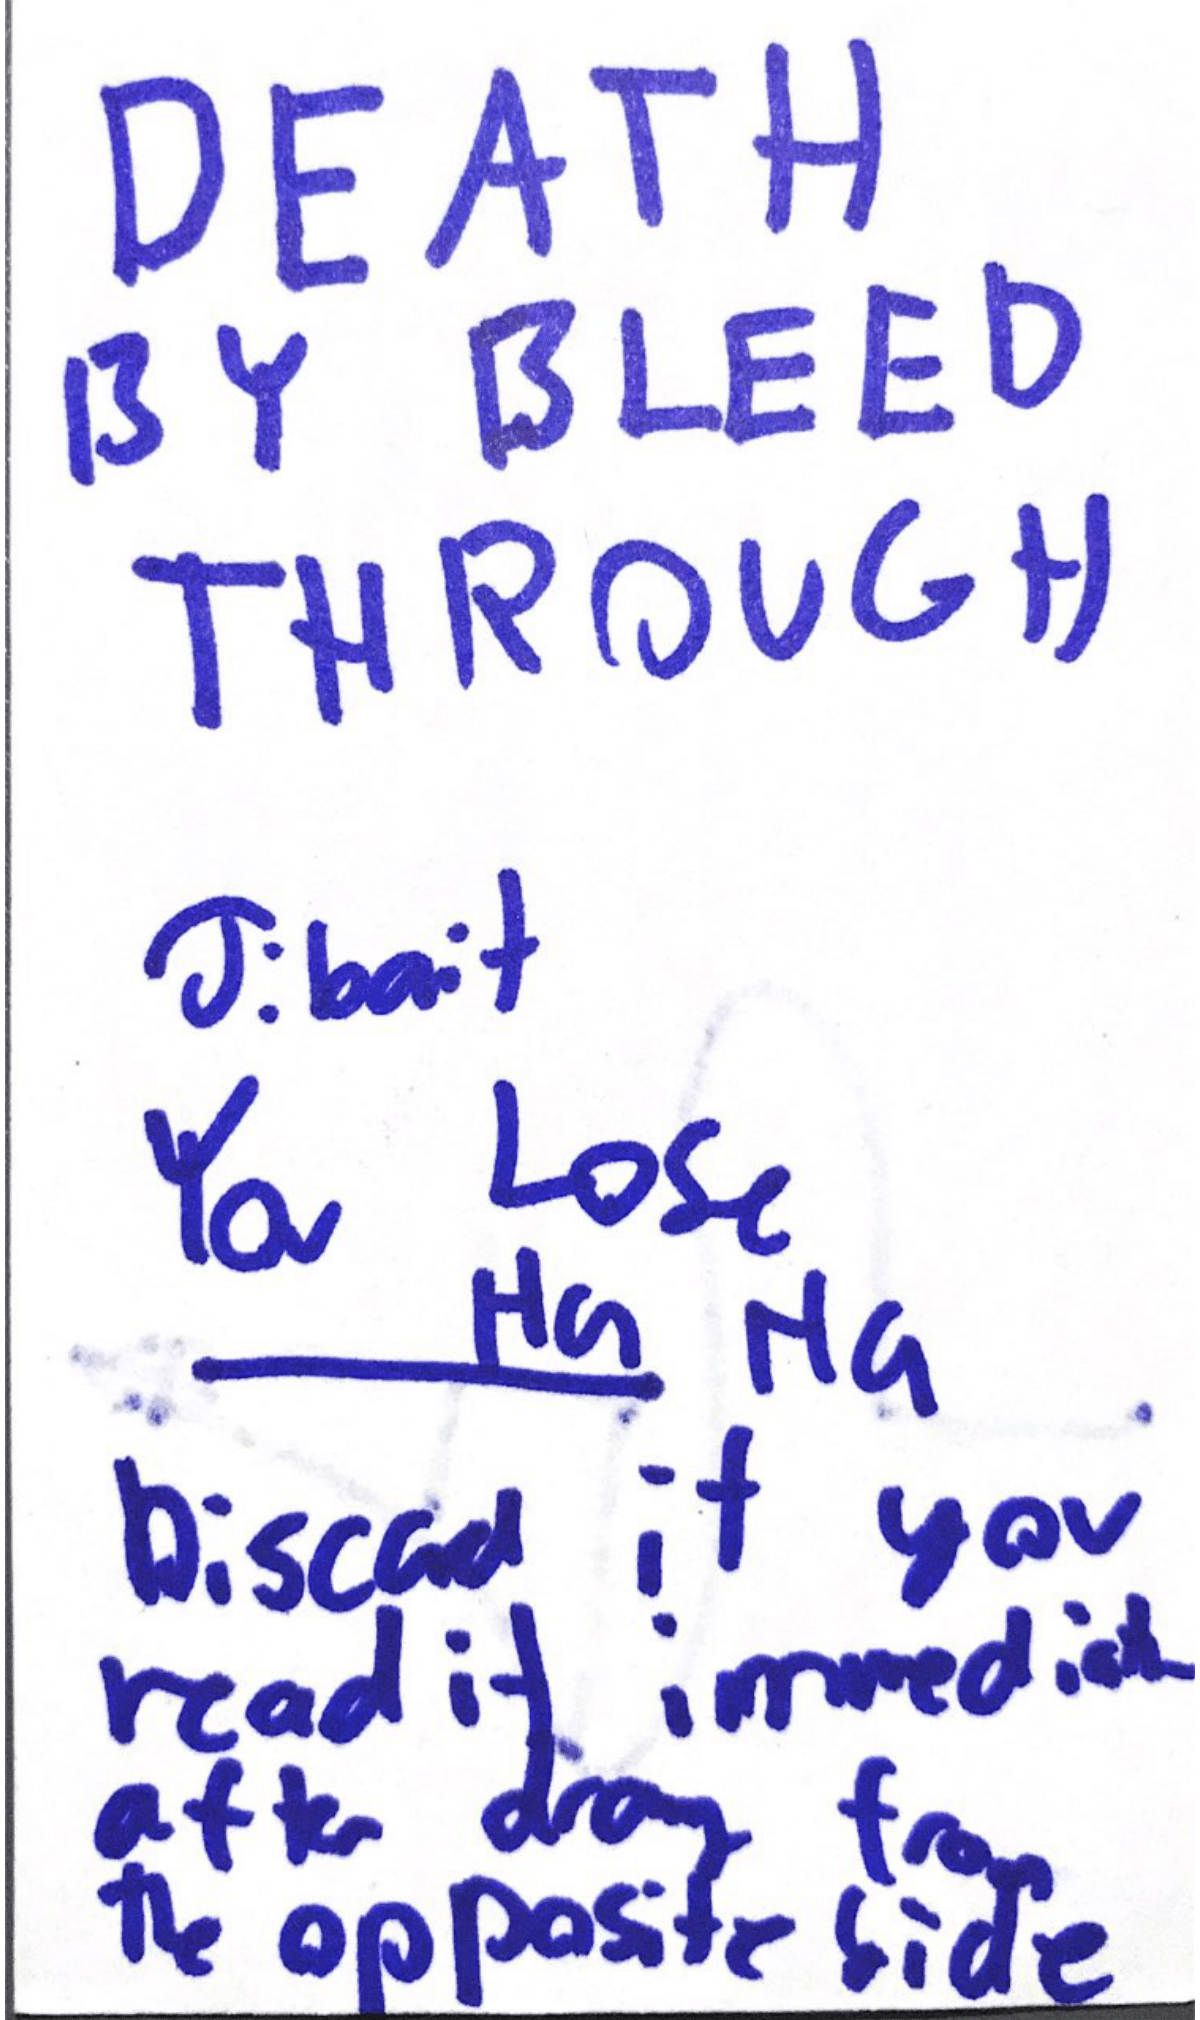 DEATH
BY BLEED
THROUGH
J:bait
You Lose
Ha HA
Discard if you
read it immediate
after draw from
the opposite side